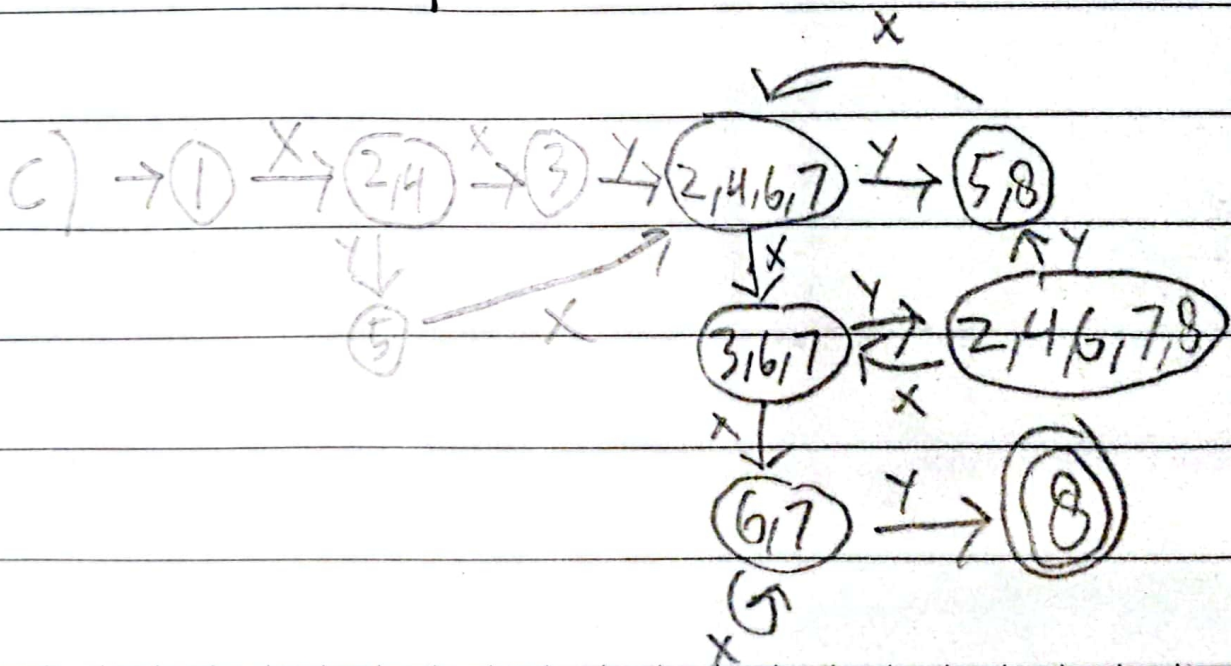 X
C) → 1 X → 2,4 X → 3 Y → 2,4,6,7 Y → 5,8
Y X Y
5 X 3,6,7 Y 2,4,6,7,8
X
X
6,7 Y → 8
X